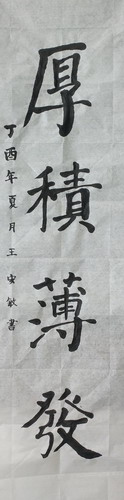 厚積薄發
丁酉年夏月王安啟書